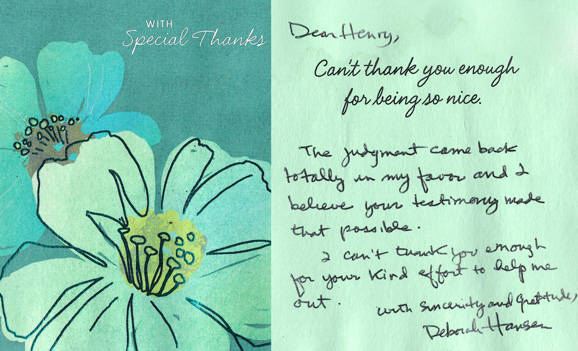 WITH
Special Thanks
Dear Henry,
Can't thank you enough
for being so nice.
The judgment came back
totally in my favor and I
believe your testimony made
that possible.
I can't thank you enough
for your kind effort to help me
out.
with sincerity and gratitude,
Deborah Hansen